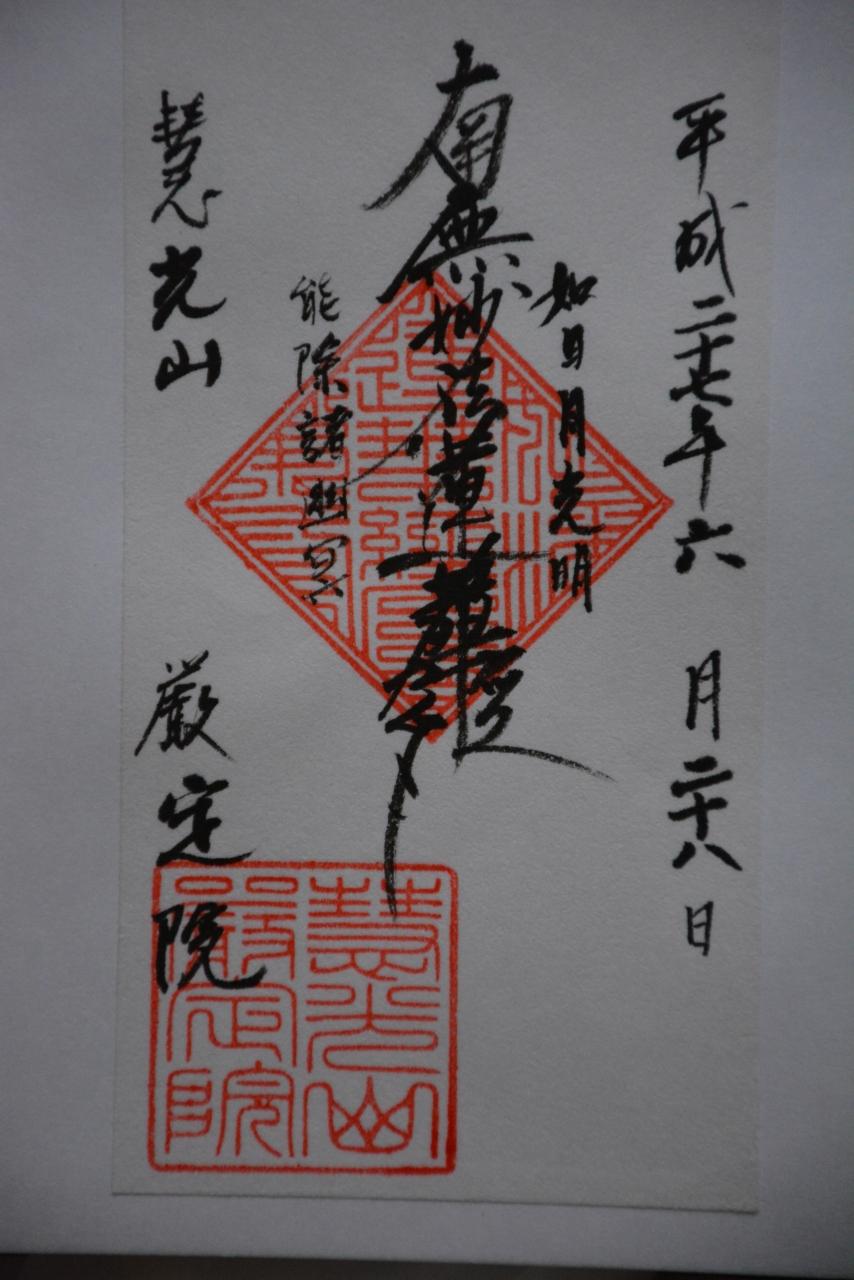 平成二十七年六月二十八日
如日月光明
南無妙法蓮華経
能除諸幽冥
慧光山 厳定院
慧光山
嚴定院